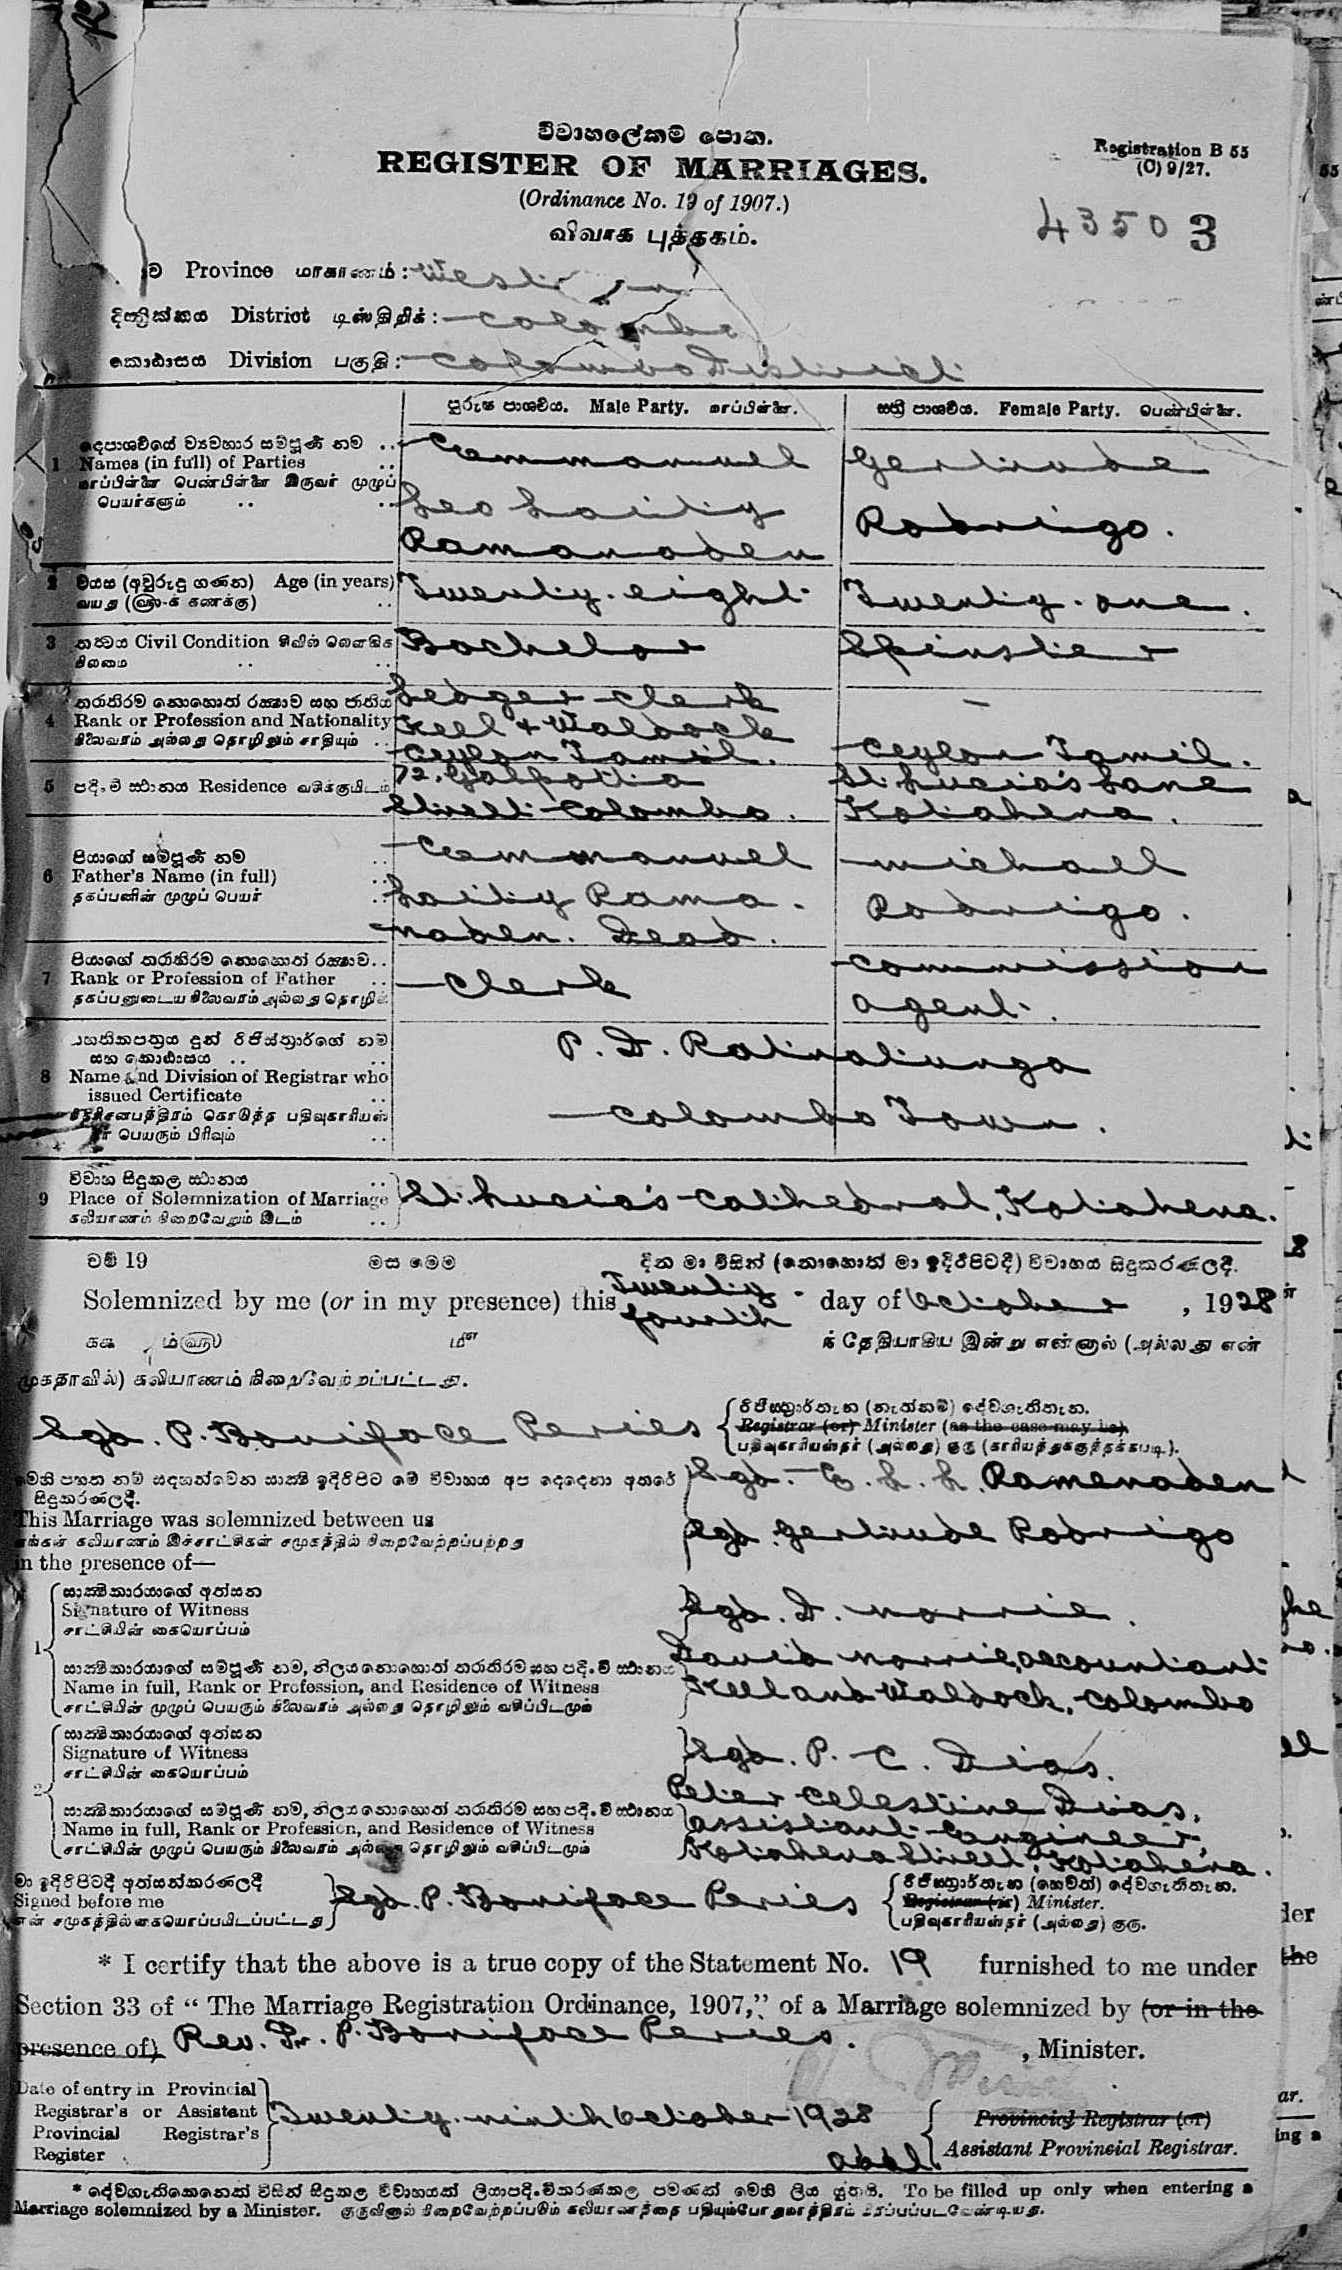 විවාහලේකම් පොත.
REGISTER OF MARRIAGES.
Registration B 55
(C) 9/27.
(Ordinance No. 19 of 1907.)
விவாக புத்தகம்.
43503
Province மாகாணம்: Western
දිස්ත්‍රික්කය District டிஸ்திறிக்: Colombo
කොඨාසය Division பகுதி: Colombo District
පුරුෂ පාර්ශවය. Male Party. மாப்பிள்ளை.
ස්ත්‍රී පාර්ශවය. Female Party. பெண்பிள்ளை.
1 Names (in full) of Parties
மாப்பிள்ளை பெண்பிள்ளை இருவர் முழுப்
பெயர்களும்
Emmanuel
Leo Laity
Ramanaden
Gertrude
Rodrigo.
2 වයස (අවුරුදු ගණන) Age (in years)
Twenty-eight
Twenty-one.
3 තත්වය Civil Condition சிவில் லௌகிக
நிலமை
Bachelor
Spinster
4 Rank or Profession and Nationality
நிலைவரம் அல்லது தொழிலும் சாதியும்
Ledger Clerk
Keell & Waldock
Ceylon Tamil.
—
Ceylon Tamil.
5 පදිංචි ස්ථානය Residence வசிக்குமிடம்
72, Galpotta
Street Colombo.
St. Lucia's Lane
Kotahena.
6 පියාගේ සම්පූර්ණ නම
Father's Name (in full)
தகப்பனின் முழுப் பெயர்
Emmanuel
Laity Rama-
naden. Dead.
Michael
Rodrigo.
7 Rank or Profession of Father
தகப்பனுடைய நிலைவரம் அல்லது தொழில்
Clerk
Commission
agent.
8 Name and Division of Registrar who
issued Certificate
பெயரும் பிரிவும்
P. D. Ratnatunga
Colombo Town.
9 විවාහ සිදුකල ස්ථානය
Place of Solemnization of Marriage
கலியாணம் நிறைவேறும் இடம்
St. Lucia's Cathedral, Kotahena.
වර්ෂ 19 මස මෙම දින මා විසින් (නොහොත් මා ඉදිරිපිටදී) විවාහය සිදුකරණලදී.
Solemnized by me (or in my presence) this Twenty-fourth day of October, 1928
ந் தேதியாகிய இன்று என்னால் (அல்லது என்
முகதாவில்) கலியாணம் நிறைவேற்றப்பட்டது.
Sgd. P. Boniface Peries
Registrar (or) Minister (as the case may be).
பதிவுகாரியஸ்தர் (அல்லது) குரு (காரியத்துக்குத்தக்கபடி).
Sgd. E. L. L. Ramenaden
සිදුකරණලදී.
This Marriage was solemnized between us
எங்கள் கலியாணம் இச்சாட்சிகள் சமுகத்தில் நிறைவேற்றப்பற்றது
in the presence of—
Sgd. Gertrude Rodrigo
1 සාක්ෂිකාරයාගේ අත්සන
Signature of Witness
சாட்சியின் கையொப்பம்
Sgd. D. Norrie.
Name in full, Rank or Profession, and Residence of Witness
சாட்சியின் முழுப் பெயரும் நிலைவரம் அல்லது தொழிலும் வசிப்பிடமும்
David Norrie, accountant
Keell and Waldock, Colombo
2 සාක්ෂිකාරයාගේ අත්සන
Signature of Witness
சாட்சியின் கையொப்பம்
Sgd. P. C. Dias.
Name in full, Rank or Profession, and Residence of Witness
சாட்சியின் முழுப் பெயரும் நிலைவரம் அல்லது தொழிலும் வசிப்பிடமும்
Peter Celestine Dias,
assistant Engineer,
Kotahena Street, Kotahena.
මා ඉදිරිපිටදී අත්සන්කරණලදී
Signed before me
என் சமுகத்தில் கையொப்பமிடப்பட்டது
Sgd. P. Boniface Peries
Registrar (or) Minister.
பதிவுகாரியஸ்தர் (அல்லது) குரு.
* I certify that the above is a true copy of the Statement No. 19 furnished to me under
Section 33 of “The Marriage Registration Ordinance, 1907,” of a Marriage solemnized by (or in the
presence of) Rev. Fr. P. Boniface Peries. , Minister.
Date of entry in Provincial
Registrar's or Assistant
Provincial Registrar's
Register
Twenty-ninth October 1928
Provincial Registrar (or)
Assistant Provincial Registrar.
To be filled up only when entering a
Marriage solemnized by a Minister. குருவினால் நிறைவேற்றப்படும் கலியாணத்தை பதியும்போதுமாத்திரம் நிரப்பப்படவேண்டியது.